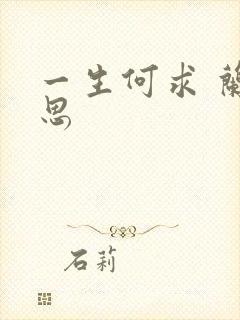 一生何求 蘭
思
石莉